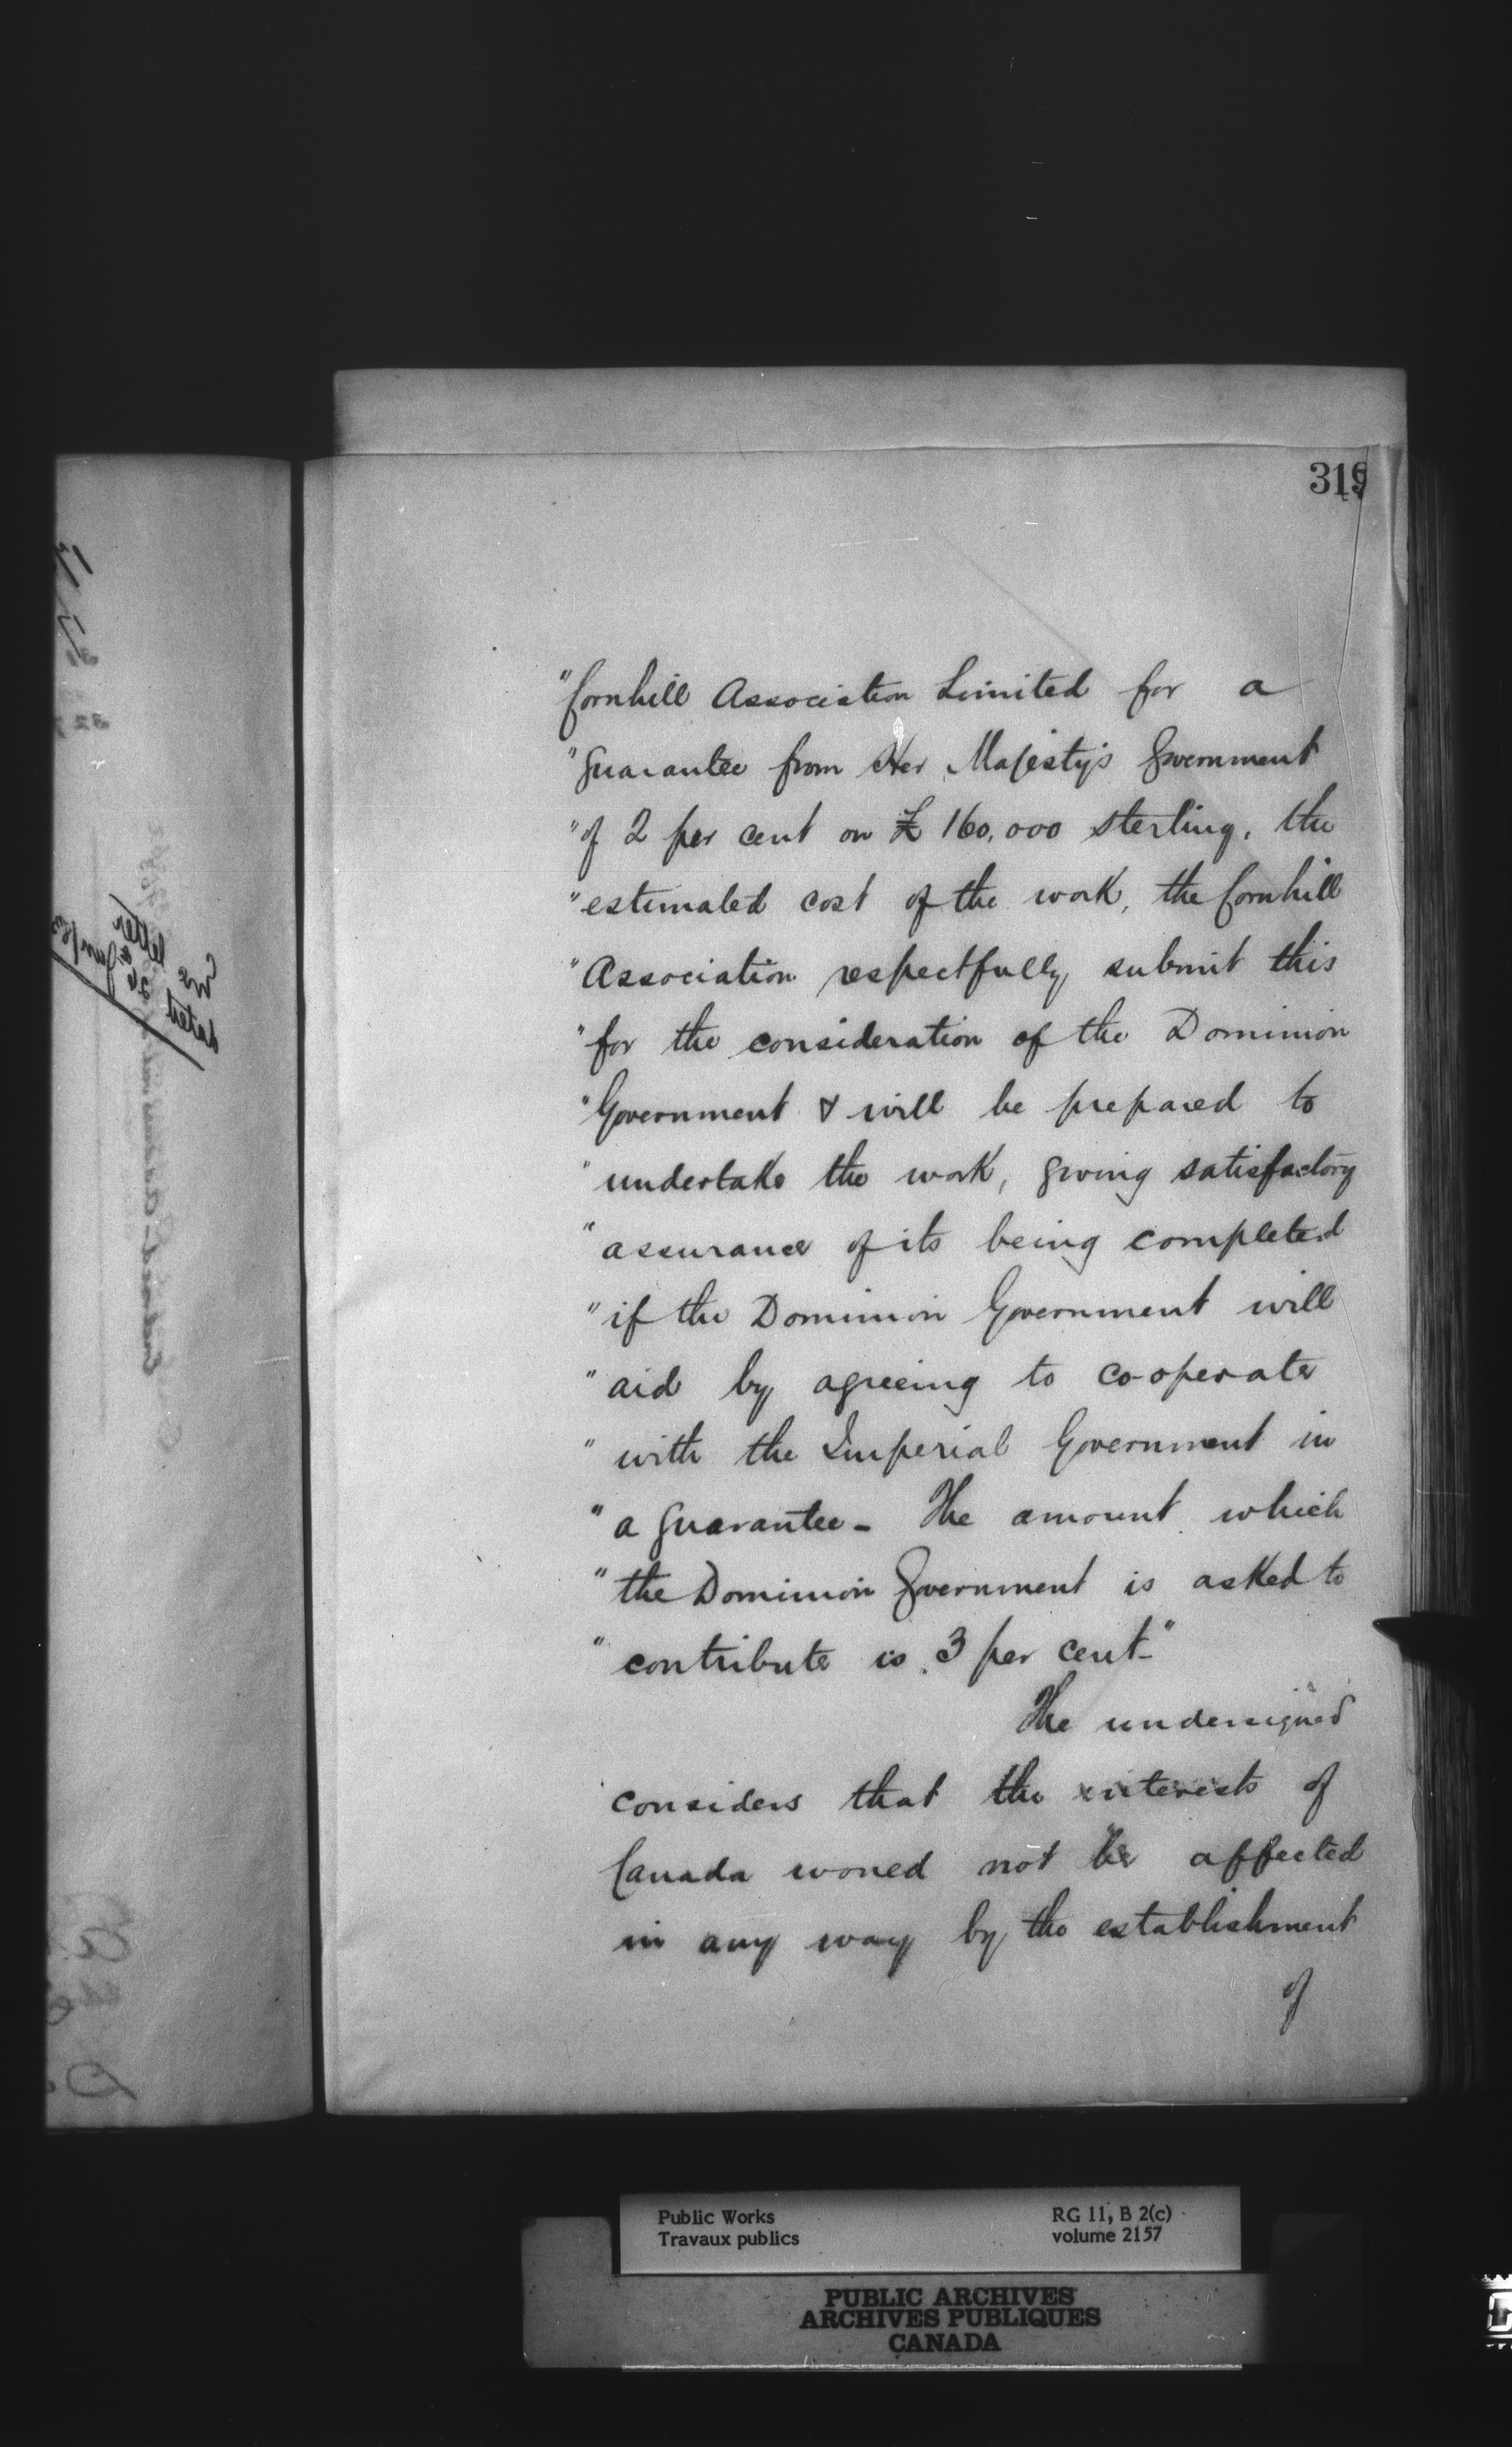 319
"Cornhill Association Limited for a
"guarantee from Her Majesty's Government
"of 2 per cent on £160,000 sterling, the
"estimated cost of the work, the Cornhill
"Association respectfully submit this
"for the consideration of the Dominion
"Government & will be prepared to
"undertake the work, giving satisfactory
"assurance of its being completed
"if the Dominion Government will
"aid by agreeing to co-operate
"with the Imperial Government in
"a guarantee - The amount which
"the Dominion Government is asked to
"contribute is 3 per cent-"
The undersigned
considers that the interests of
Canada would not be affected
in any way by the establishment
of
Public Works
Travaux publics
RG 11, B 2(c)
volume 2157
PUBLIC ARCHIVES
ARCHIVES PUBLIQUES
CANADA